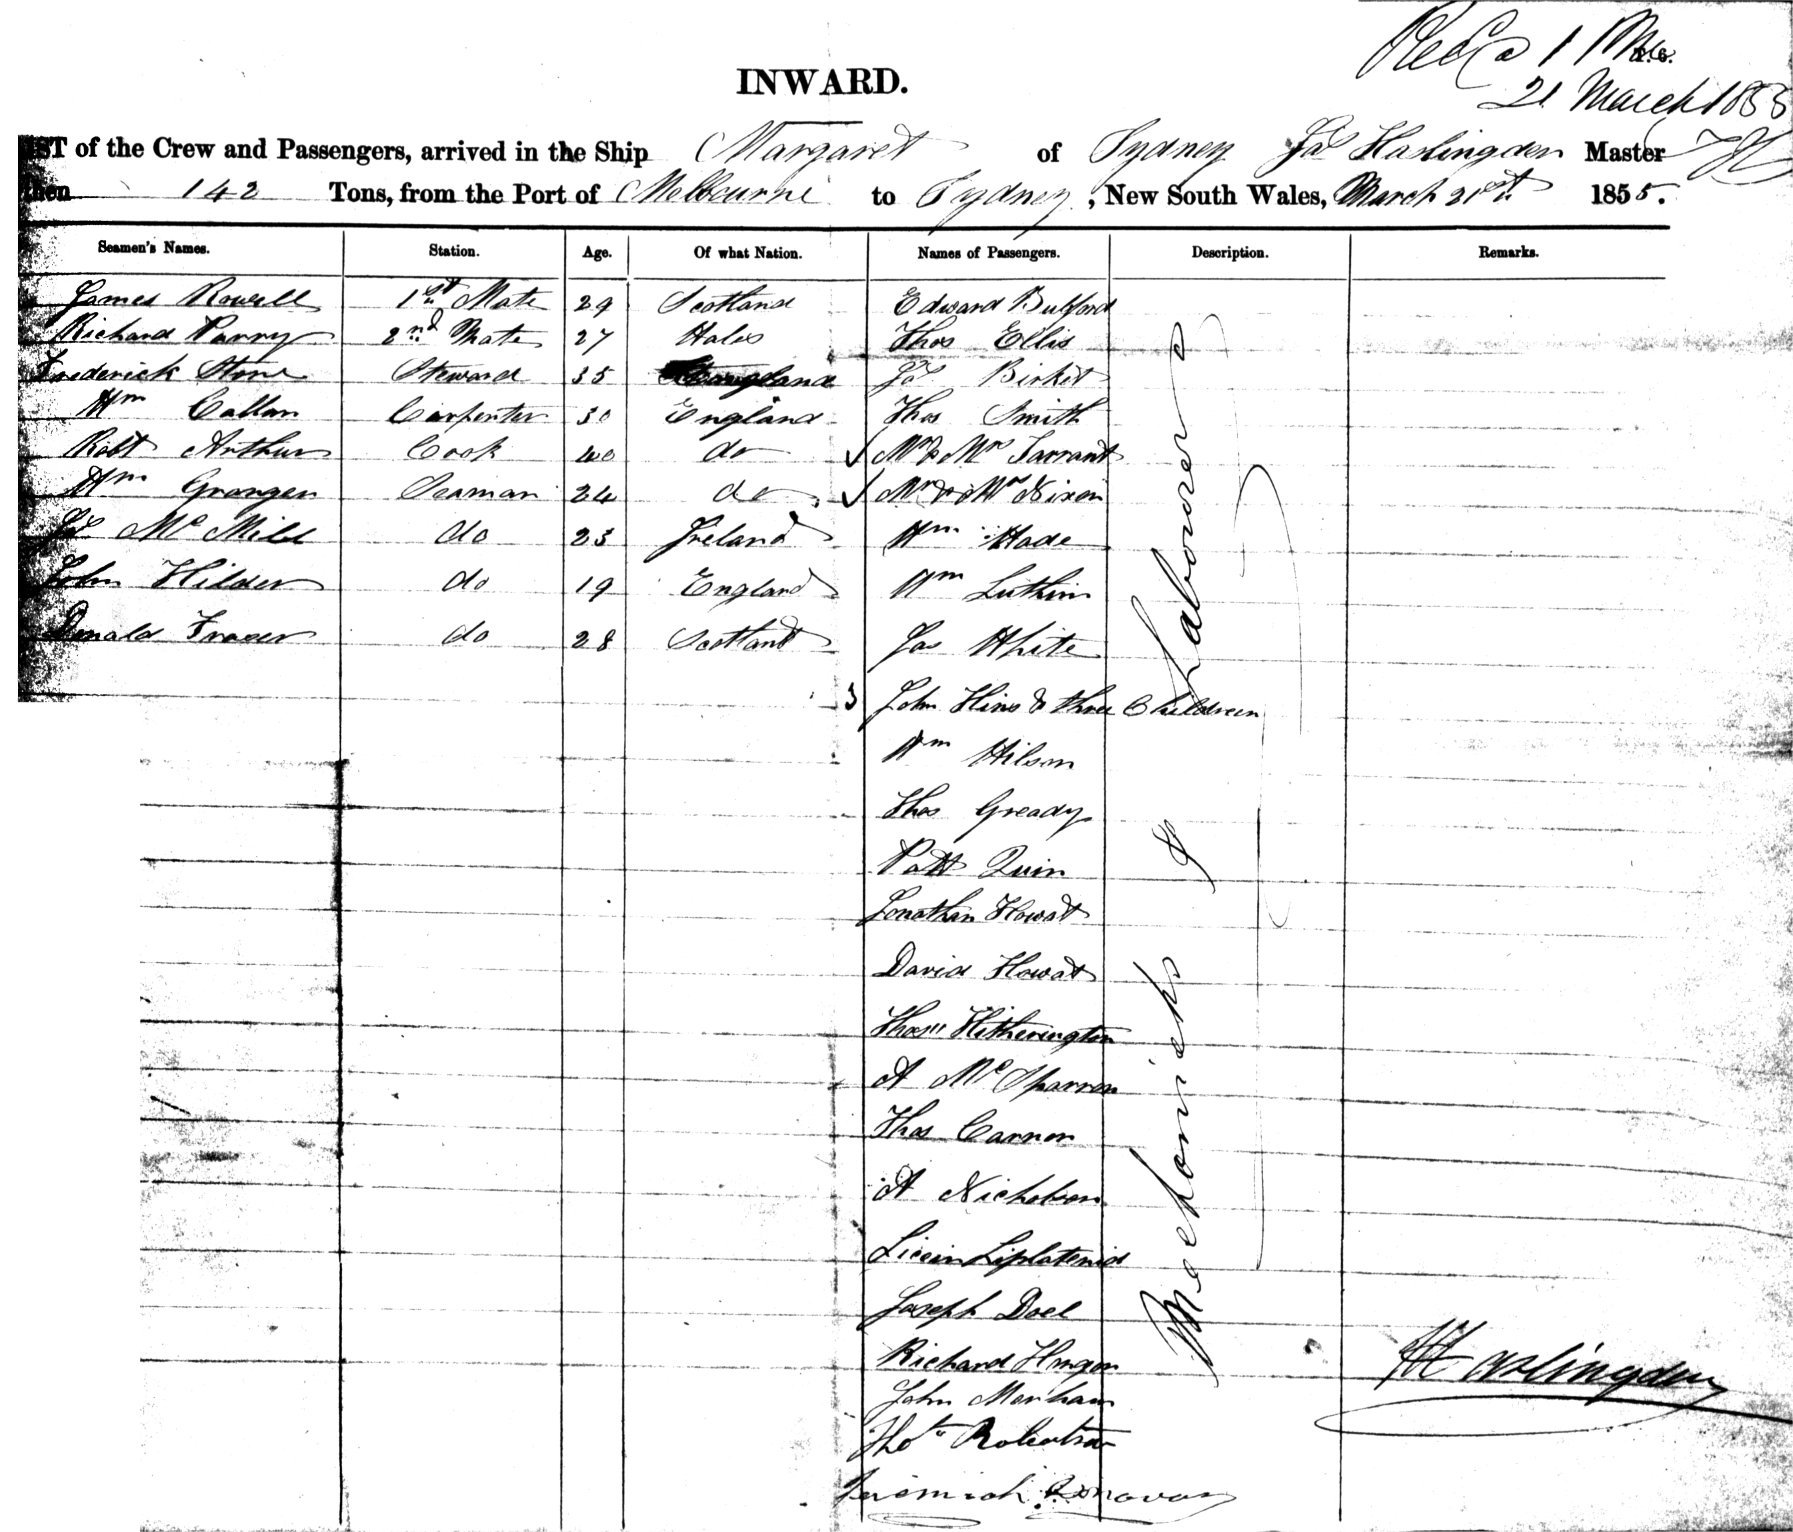 21 March 1855
INWARD.
LIST of the Crew and Passengers, arrived in the Ship Margaret of Sydney Jas Haslingden Master
142 Tons, from the Port of Melbourne to Sydney, New South Wales, March 21st 1855.
Seamen's Names. Station. Age. Of what Nation. Names of Passengers. Description. Remarks.
James Rowell 1st Mate 29 Scotland Edward Bulford
Richard Parry 2nd Mate 27 Wales Thos Ellis
Frederick Stone Steward 35 England Jas Birket
Wm Callan Carpenter 30 England Thos Smith
Robt Arthur Cook 40 do Mr & Mrs Tarrant
Wm Granger Seaman 24 do Mr & Mrs Nixon
Jas McMill do 25 Ireland Wm Wade
John Hilder do 19 England Wm Luthin
Donald Fraser do 28 Scotland Jas White
3 John Hins & three Children
Wm Wilson
Thos Gready
Patt Quin
Jonathan Howat
David Howat
Thos Hitherington
A McSparron
Thos Cannon
A Nicholson
Joseph Doel
Richard
John Merham
Thos Robertson
Jeremiah Donovan
Mechanicks & Labourers
Haslingden